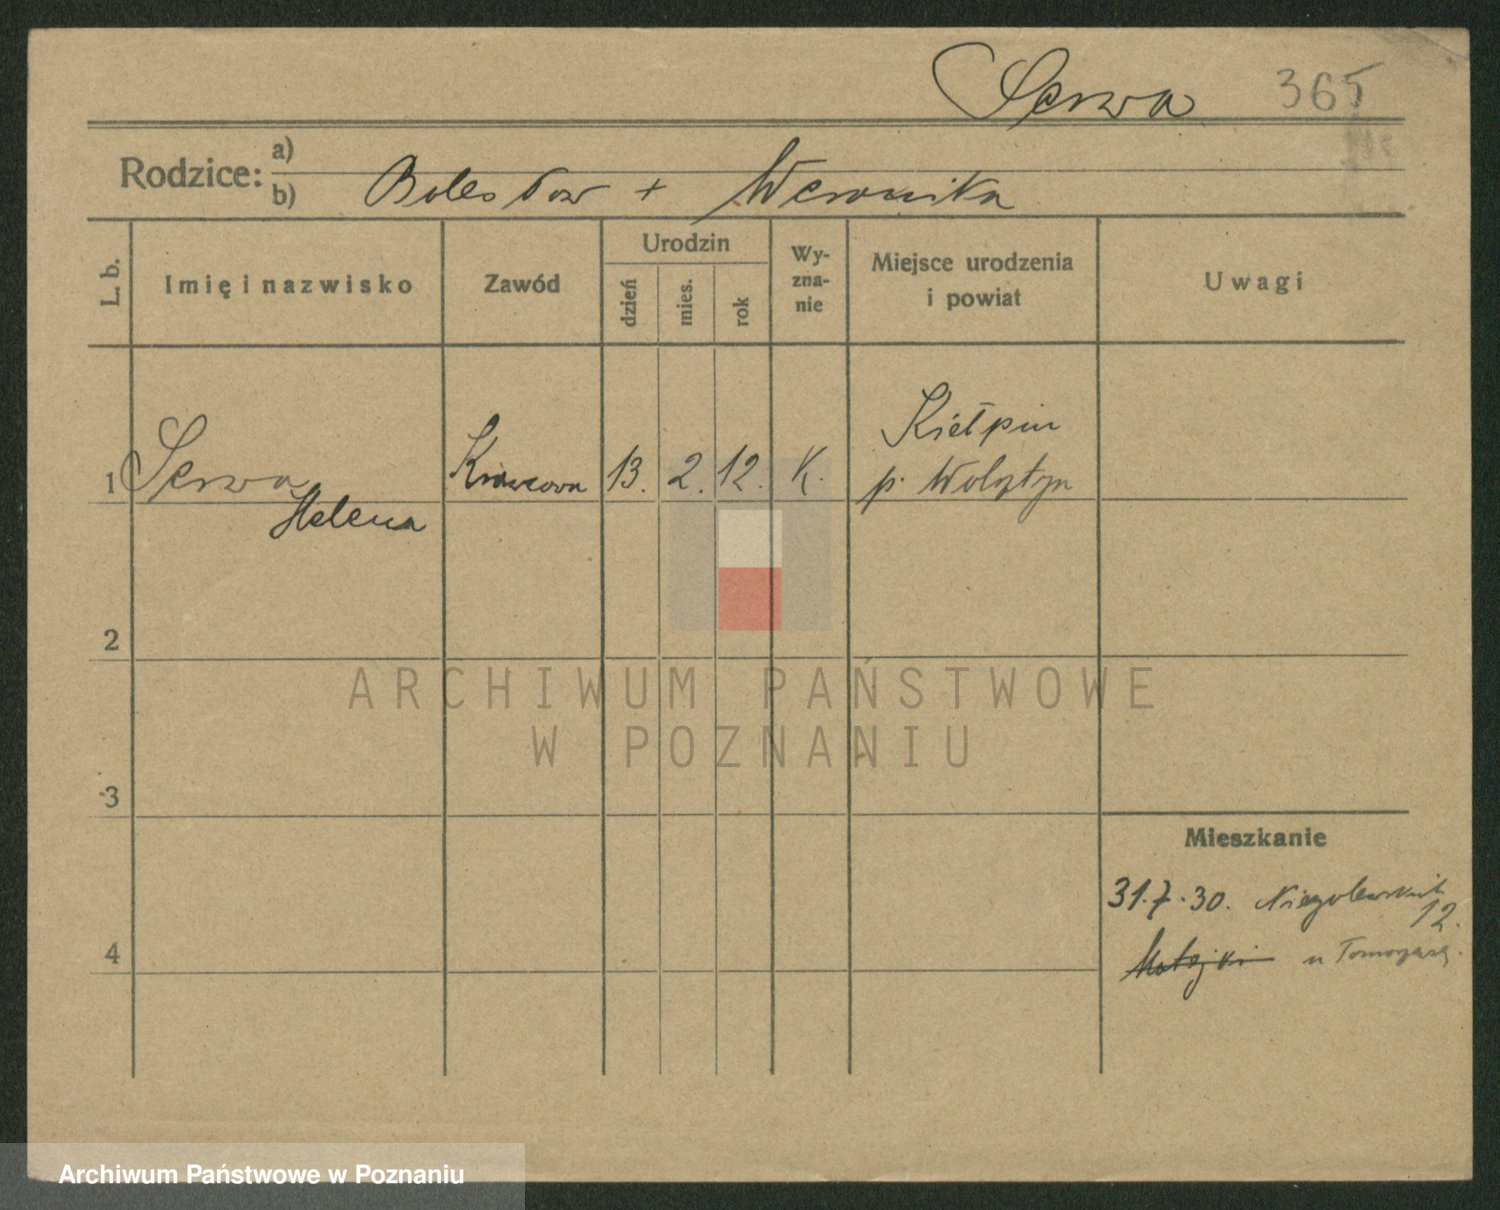 Serwa 365
Rodzice: a)
b) Bolesław + Weronika
L. b.
Imię i nazwisko
Zawód
Urodzin
dzień
mies.
rok
Wy-
zna-
nie
Miejsce urodzenia
i powiat
Uwagi
1 Serwa
Helena
Krawcowa
13. 2. 12. K.
Kiełpin
p. Wolsztyn
2
3
4
ARCHIWUM PAŃSTWOWE
W POZNANIU
Mieszkanie
31.7.30. Niegolewskich
12.
Matejki u
Archiwum Państwowe w Poznaniu